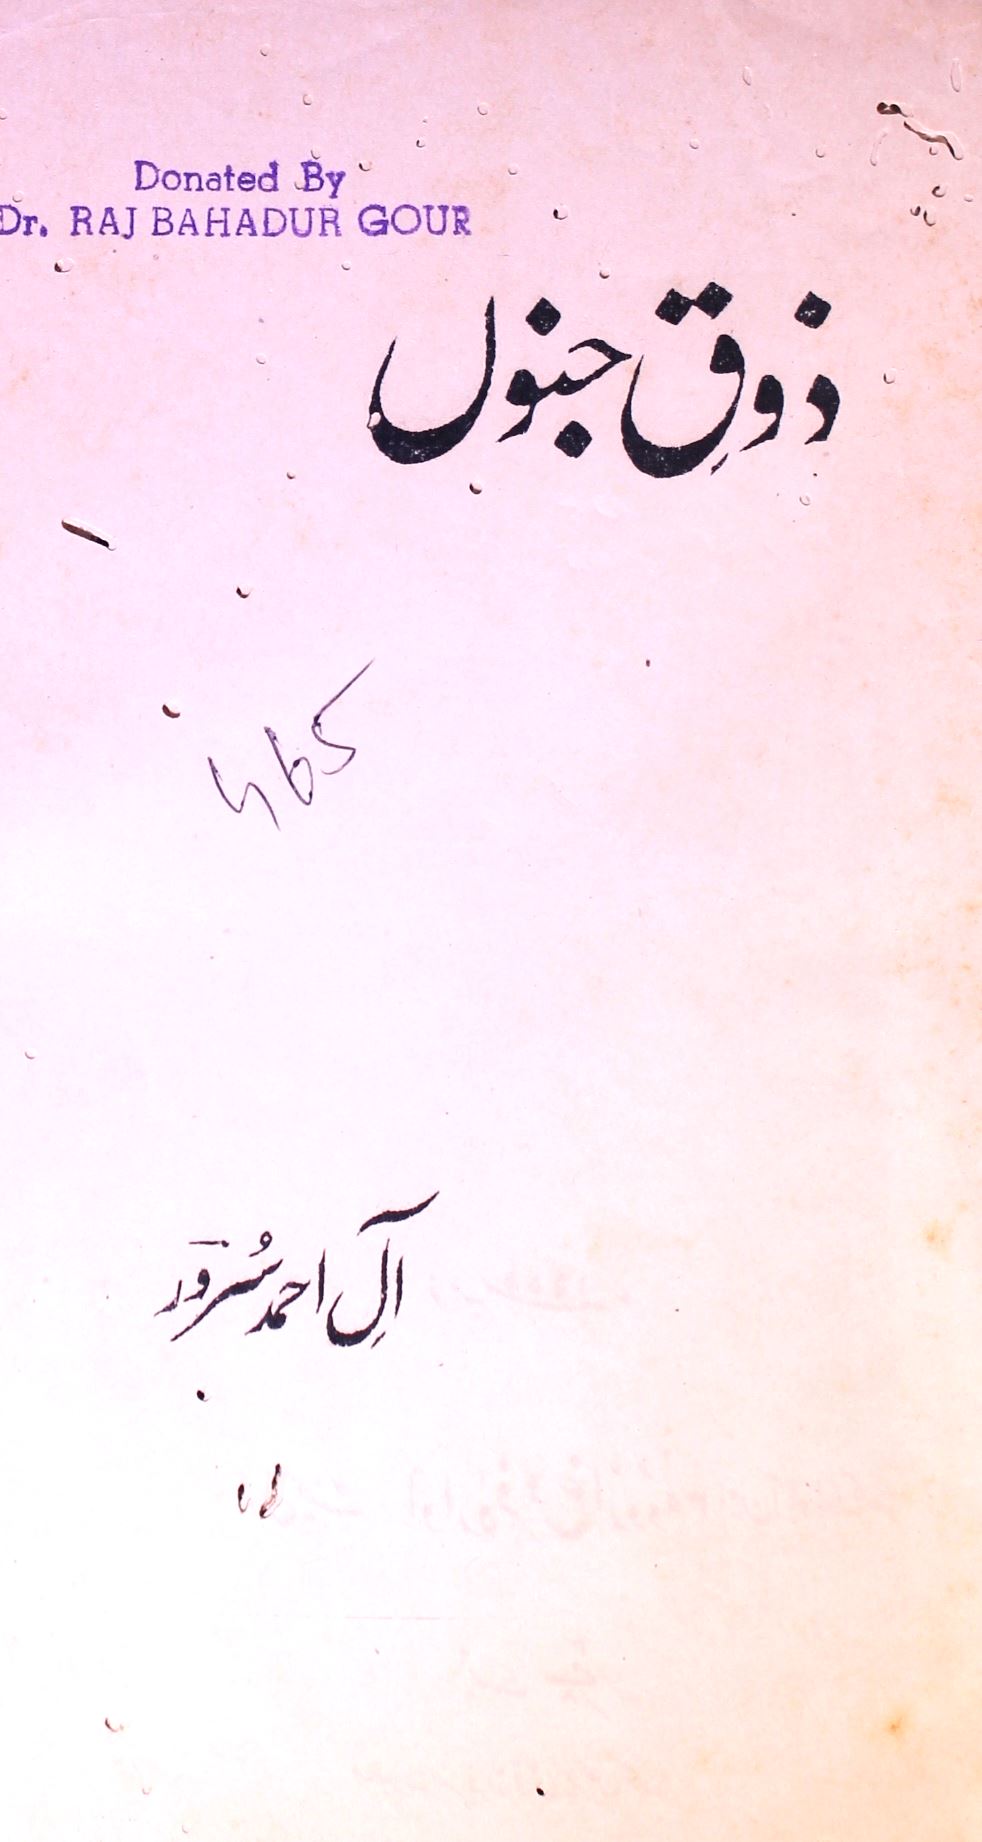 Donated By
Dr. RAJ BAHADUR GOUR
ذوقِ جنوں
465
آلِ احمد سُرور